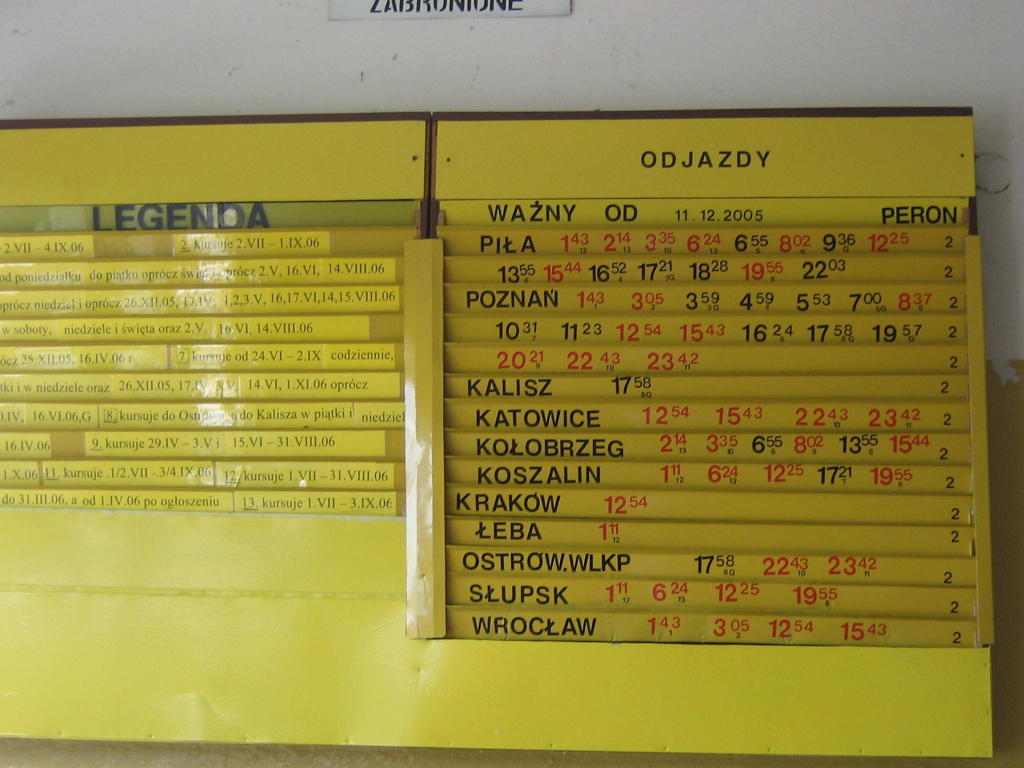 ZABRONIONE
LEGENDA
2.VII – 4.IX.06 2. kursuje 2.VII – 1.IX.06
od poniedziałku do piątku oprócz świąt i oprócz 2.V, 16.VI, 14.VIII.06
oprócz niedziel i oprócz 26.XII.05, 17.IV, 1,2,3.V, 16,17.VI,14,15.VIII.06
w soboty, niedziele i święta oraz 2.V, 16.VI, 14.VIII.06
25.XII.05, 16.IV.06 r 7. kursuje od 24.VI – 2.IX codziennie,
i w niedziele oraz 26.XII.05, 17.IV, 3.V, 14.VI, 1.XI.06 oprócz
16.VI.06,G 8. kursuje do Ostrowa, a do Kalisza w piątki i niedziel
16.IV.06 9. kursuje 29.IV – 3.V i 15.VI – 31.VIII.06
1.X.06 11. kursuje .1/2.VII -.3/4.IX.06 12. kursuje 1.VII – 31.VIII.06
do 31.III.06, a od 1.IV.06 po ogłoszeniu 13. kursuje 1.VII – 3.IX.06
ODJAZDY
WAŻNY OD 11.12.2005 PERON
PIŁA 1 43 12 2 14 13 3 35 10 6 24 13 6 55 6 8 02 9 9 36 G 12 25 2
13 55 6 15 44 16 52 4 17 21 7G 18 28 19 55 6 22 03 2
POZNAŃ 1 43 1 3 05 2 3 59 3G 4 59 4 5 53 7 00 5G 8 37 6 2
10 31 7 11 23 12 54 15 43 16 24 6 17 58 8G 19 57 G 2
20 21 9 22 43 10 23 42 11 2
KALISZ 17 58 8G 2
KATOWICE 12 54 15 43 22 43 10 23 42 11 2
KOŁOBRZEG 2 14 13 3 35 10 6 55 6 8 02 9 13 55 6 15 44 2
KOSZALIN 1 11 12 6 24 13 12 25 17 21 7 19 55 6 2
KRAKÓW 12 54 2
ŁEBA 1 11 12 2
OSTRÓW.WLKP 17 58 8G 22 43 10 23 42 11 2
SŁUPSK 1 11 12 6 24 13 12 25 19 55 6 2
WROCŁAW 1 43 1 3 05 2 12 54 15 43 2